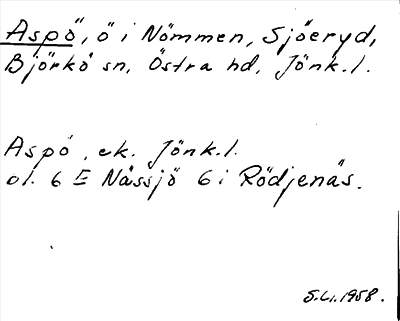 Aspö, ö i Nömmen, Sjöeryd,
Björkö sn, Östra hd, Jönk.l.
Aspö, ek. Jönk.l.
bl. 6 E Nässjö G i Rödjenäs.
S.Li.1958.